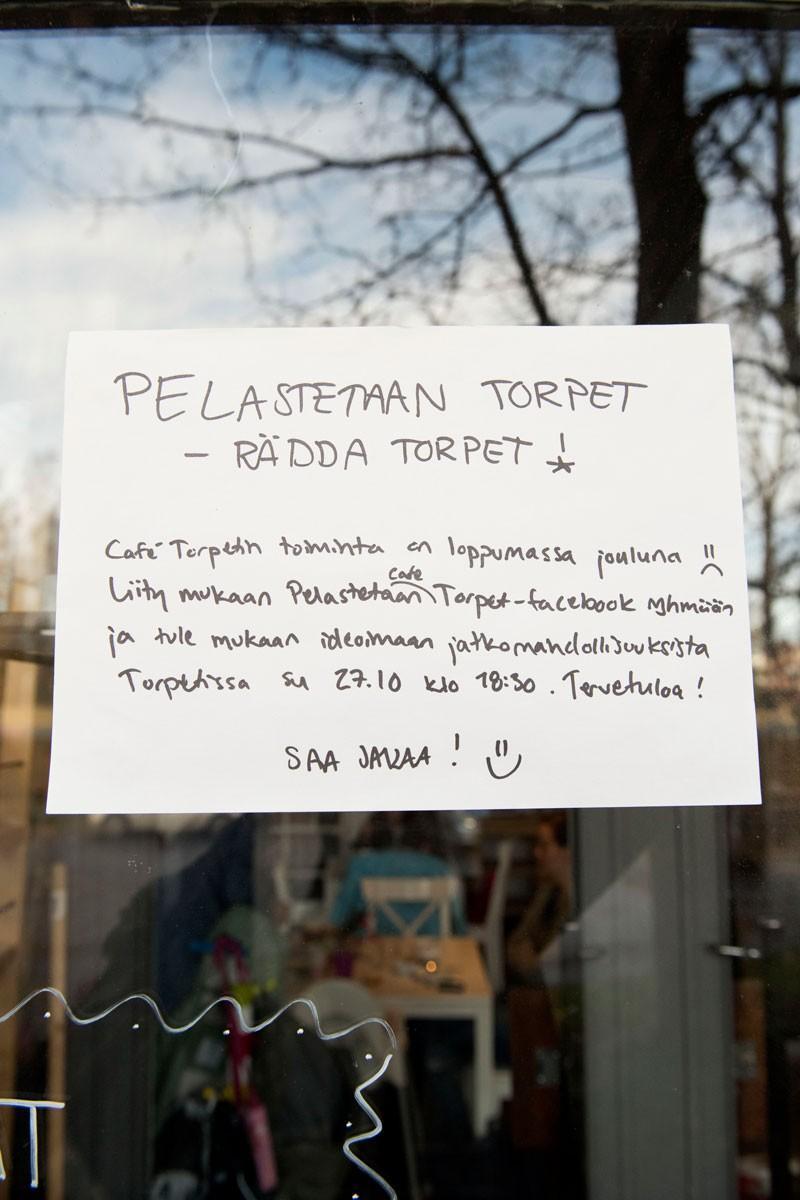 PELASTETAAN TORPET
- RÄDDA TORPET !
Café Torpetin toiminta on loppumassa jouluna :(
Liity mukaan Pelastetaan Café Torpet-facebook ryhmään
ja tule mukaan ideoimaan jatkomahdollisuuksista
Torpetissa su 27.10 klo 18:30. Tervetuloa!
SAA JAKAA! :)